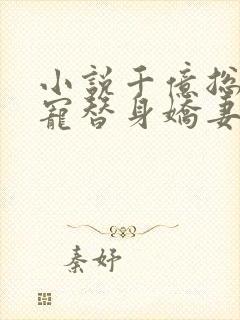 小說千億總
寵替身嬌妻
秦妤